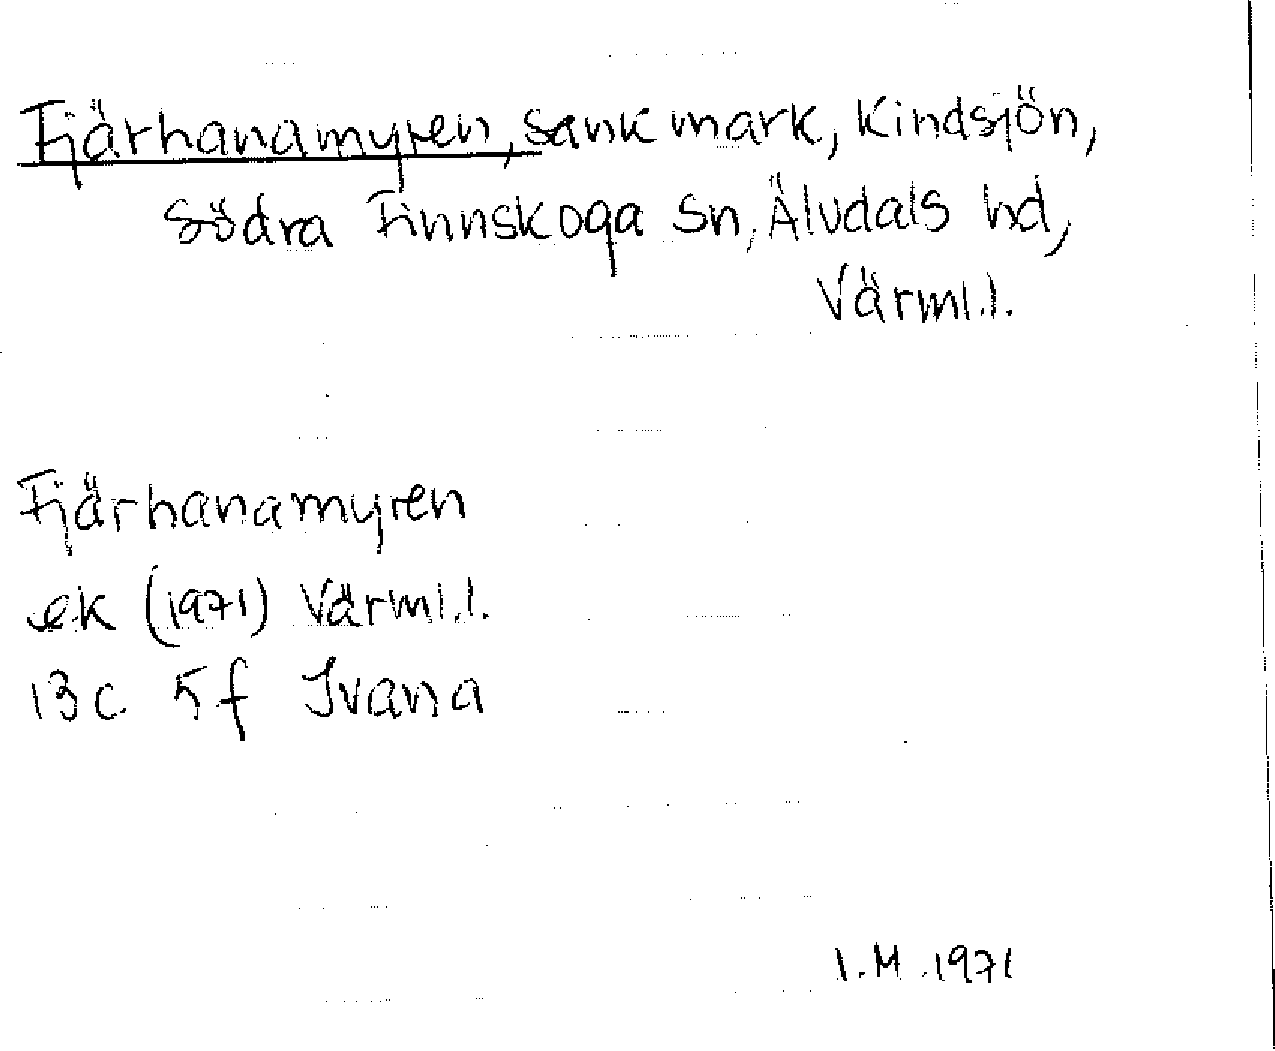 Fjärhanamyren, sank mark, Kindsjön,
Södra Finnskoga sn, Älvdals hd,
Värml.l.
Fjärhanamyren
ek (1971) Värml.l.
13c 5f Ivana
I.M. 1971